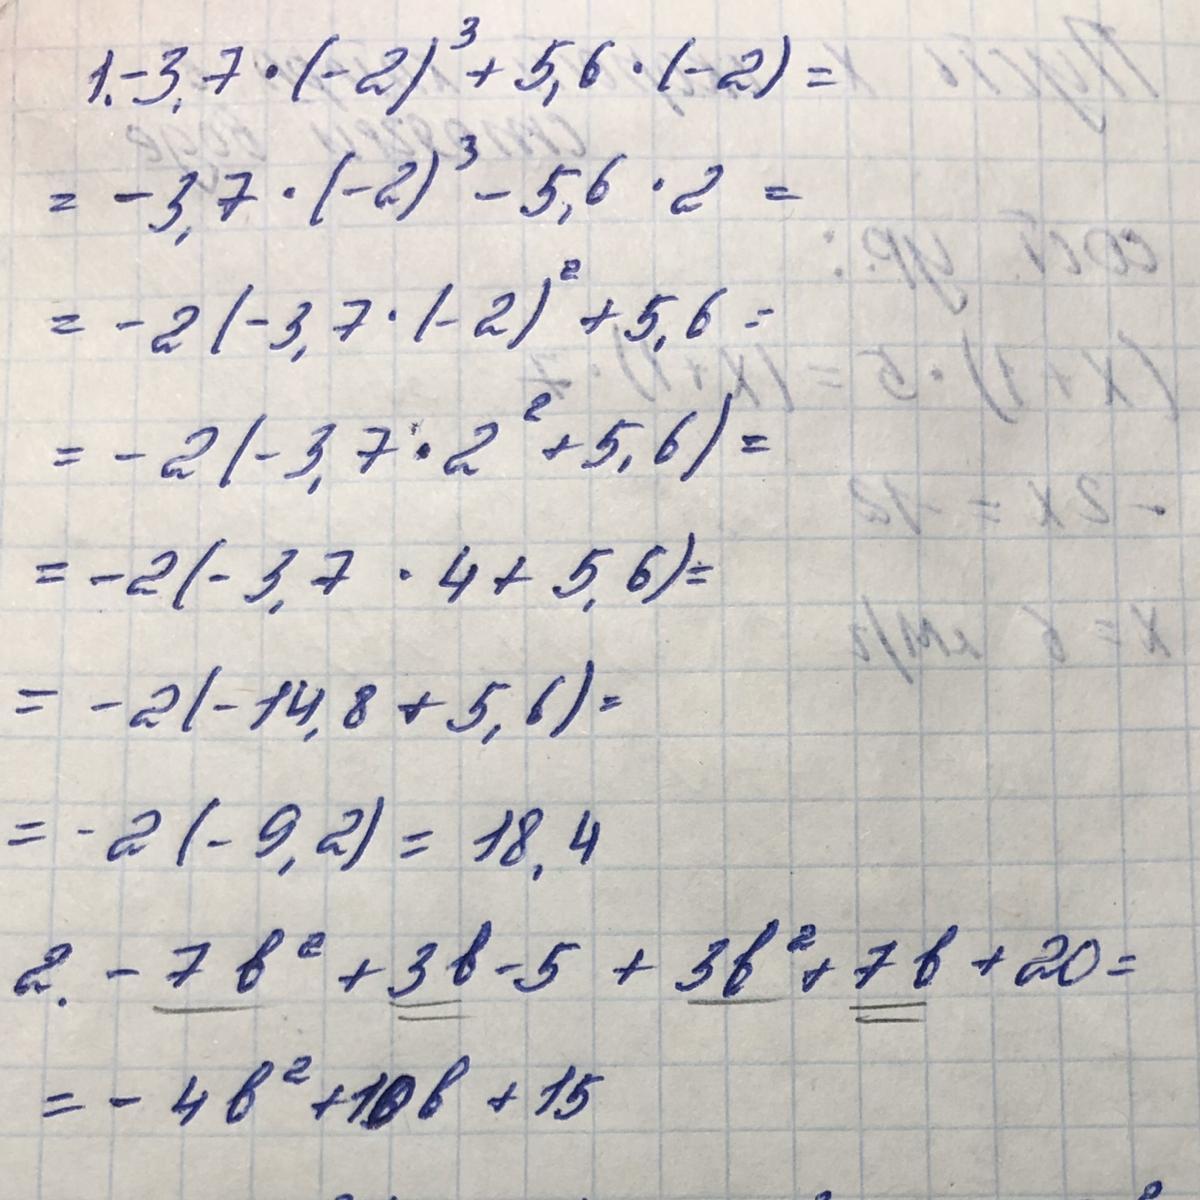 1. -3,7·(-2)³+5,6·(-2)=
= -3,7·(-2)³-5,6·2 =
= -2(-3,7·(-2)²+5,6=
= -2(-3,7·2²+5,6)=
= -2(-3,7·4+5,6)=
= -2(-14,8+5,6)=
= -2(-9,2)= 18,4
2. -7b²+3b-5+3b²+7b+20=
= -4b²+10b+15